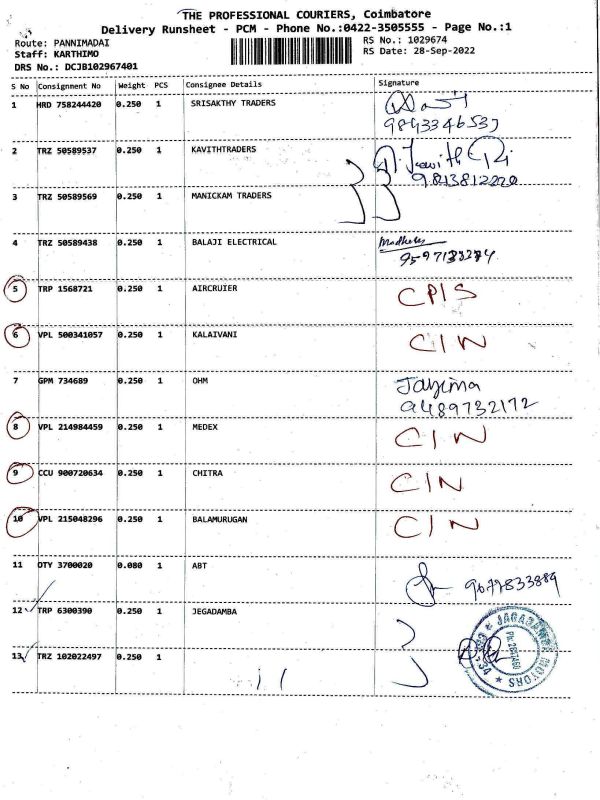 THE PROFESSIONAL COURIERS, Coimbatore
Delivery Runsheet - PCM - Phone No.:0422-3505555 - Page No.:1
Route: PANNIMADAI
RS No.: 1029674
Staff: KARTHIMO
RS Date: 28-Sep-2022
DRS No.: DCJB102967401
S No Consignment No Weight PCS Consignee Details Signature
1 HRD 758244420 0.250 1 SRISAKTHY TRADERS
9843346537
2 TRZ 50589537 0.250 1 KAVITHTRADERS
9843812220
3 TRZ 50589569 0.250 1 MANICKAM TRADERS
4 TRZ 50589438 0.250 1 BALAJI ELECTRICAL
5 TRP 1568721 0.250 1 AIRCRUIER
6 VPL 500341057 0.250 1 KALAIVANI CIN
7 GPM 734689 0.250 1 OHM
9489732172
8 VPL 214984459 0.250 1 MEDEX CIN
9 CCU 900720634 0.250 1 CHITRA CIN
10 VPL 215048296 0.250 1 BALAMURUGAN CIN
11 OTY 3700020 0.080 1 ABT 9677833889
12 TRP 6300390 0.250 1 JEGADAMBA
13 TRZ 102022497 0.250 1
MOTORS